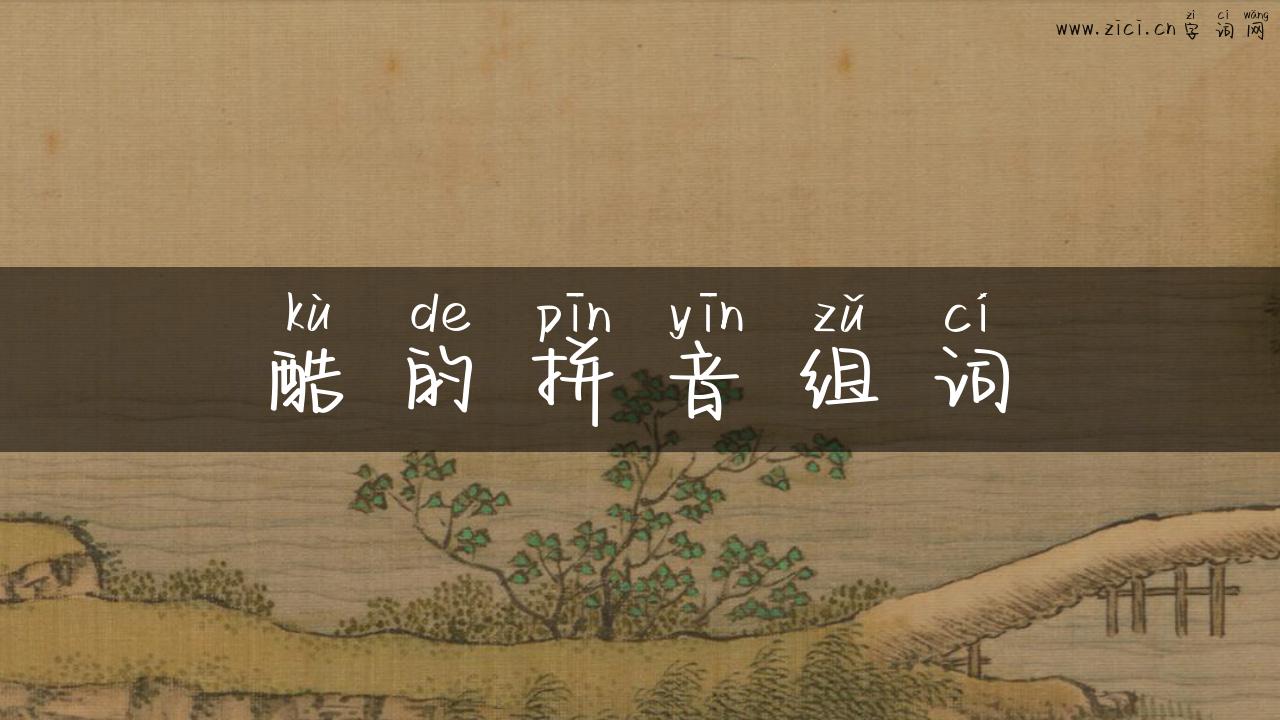 zì cí wǎng
www.zici.cn 字词网
kù de pīn yīn zǔ cí
酷的拼音组词